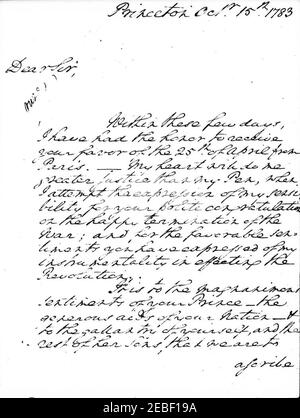 Princeton Octr. 15th. 1783
Dear Sir,
Within these few days,
I have had the honor to receive
your favor of the 25th of April from
Paris. — My heart will do me
greater justice than my Pen, when
I attempt the expression of my sensi
bility for your polite congratulations
on the happy termination of the
War; and for the favorable sen
timents you have expressed of my
instrumentality in effecting the
Revolution.
It is to the magnanimous
sentiments of your Prince — the
generous aids of your Nation — &
to the gallantry of yourself, and the
rest of her sons, that we are to
ascribe
alamy
Image ID: 2EBF19A
www.alamy.com